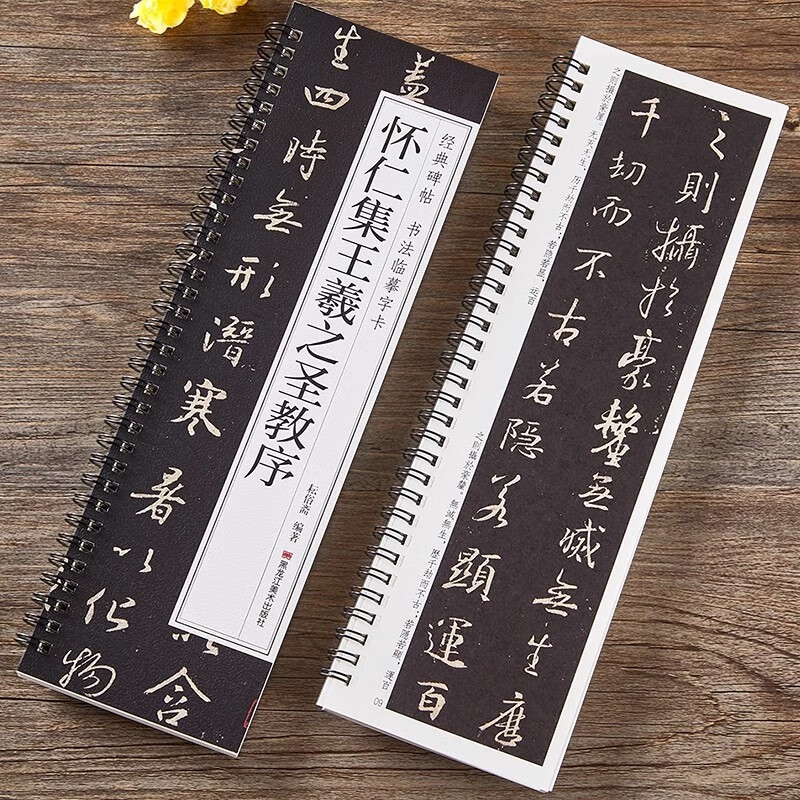 盖
含
生四時無形潛寒暑以化物
经典碑帖 书法临摹字卡
怀仁集王羲之圣教序
编著
黑龙江美术出版社
之則攝於豪氂無滅無生歷
千劫而不古若隱若顯運百
之则摄於豪厘。无灭无生，历千劫而不古；若隐若显，运百
之則攝於豪氂。無滅無生，歷千劫而不古；若隱若顯，運百
09